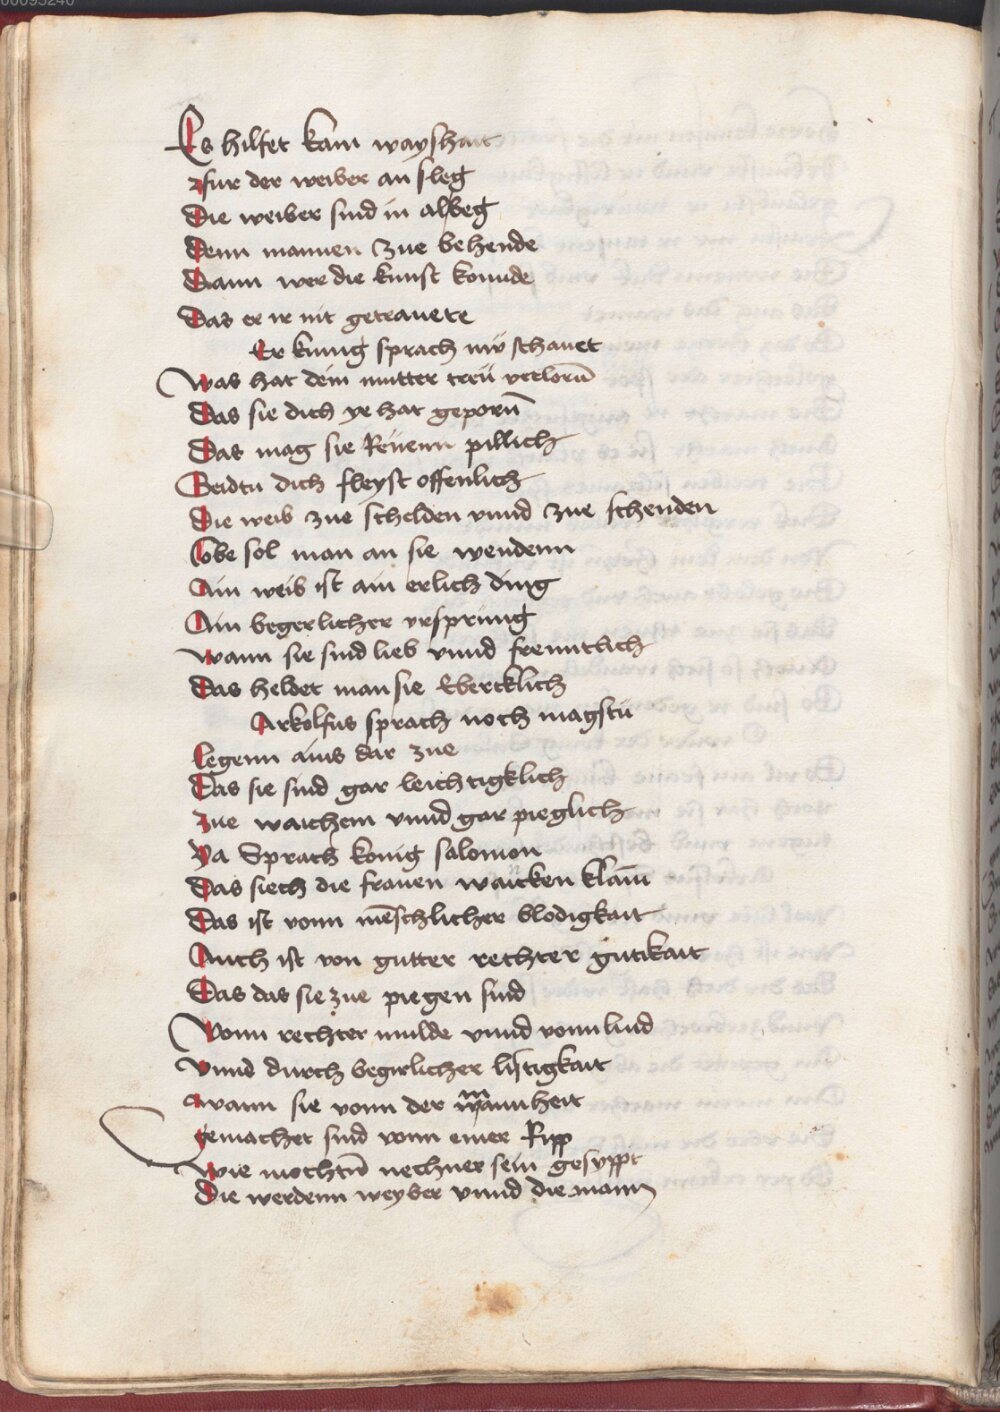 Es hilfet kain wayshait
zfur der weiber an sleg
Die weiber sind in alweg
Denn mannen zue behende
Dann wer die kunst konnde
Das er ir nit getrauete
Er kunig sprach nw schauet
Was hat dein mutter treü verlorn̄
Das sie dich ye hat geporn̄
Das mag sie Reüenn pillich
Seidtu dich fleyst offenlich
Die weib zue schelden vnnd zue schenden
Lobe sol man an sie wendenn
Ain weib ist ain erlich ding
Ain begerlicher vrsprüng
wann sie sind lieb vnnd freuntlich
Das heldet man sie
Arkolfus sprach noch magstü
Legenn ains dar zue
Das sie sind gar leichtigklich
zue waichem vnnd gar pieglich
Ya Sprach konig salomon
Das siech die frauen waicken
Das ist vonn mēschlicher blodigkait
Auch ist von gutter rechter gutikait
Das das sie zue piegen sind
Vonn rechter milde vnnd vonn lind
Vnnd durch begirlicher listigkait
wann sie vonn der mannheit
gemachet sind vonn einer Ripp
wie mochtn̄ nechner sein gesyppt
Die werdenn weyber vnnd die mann